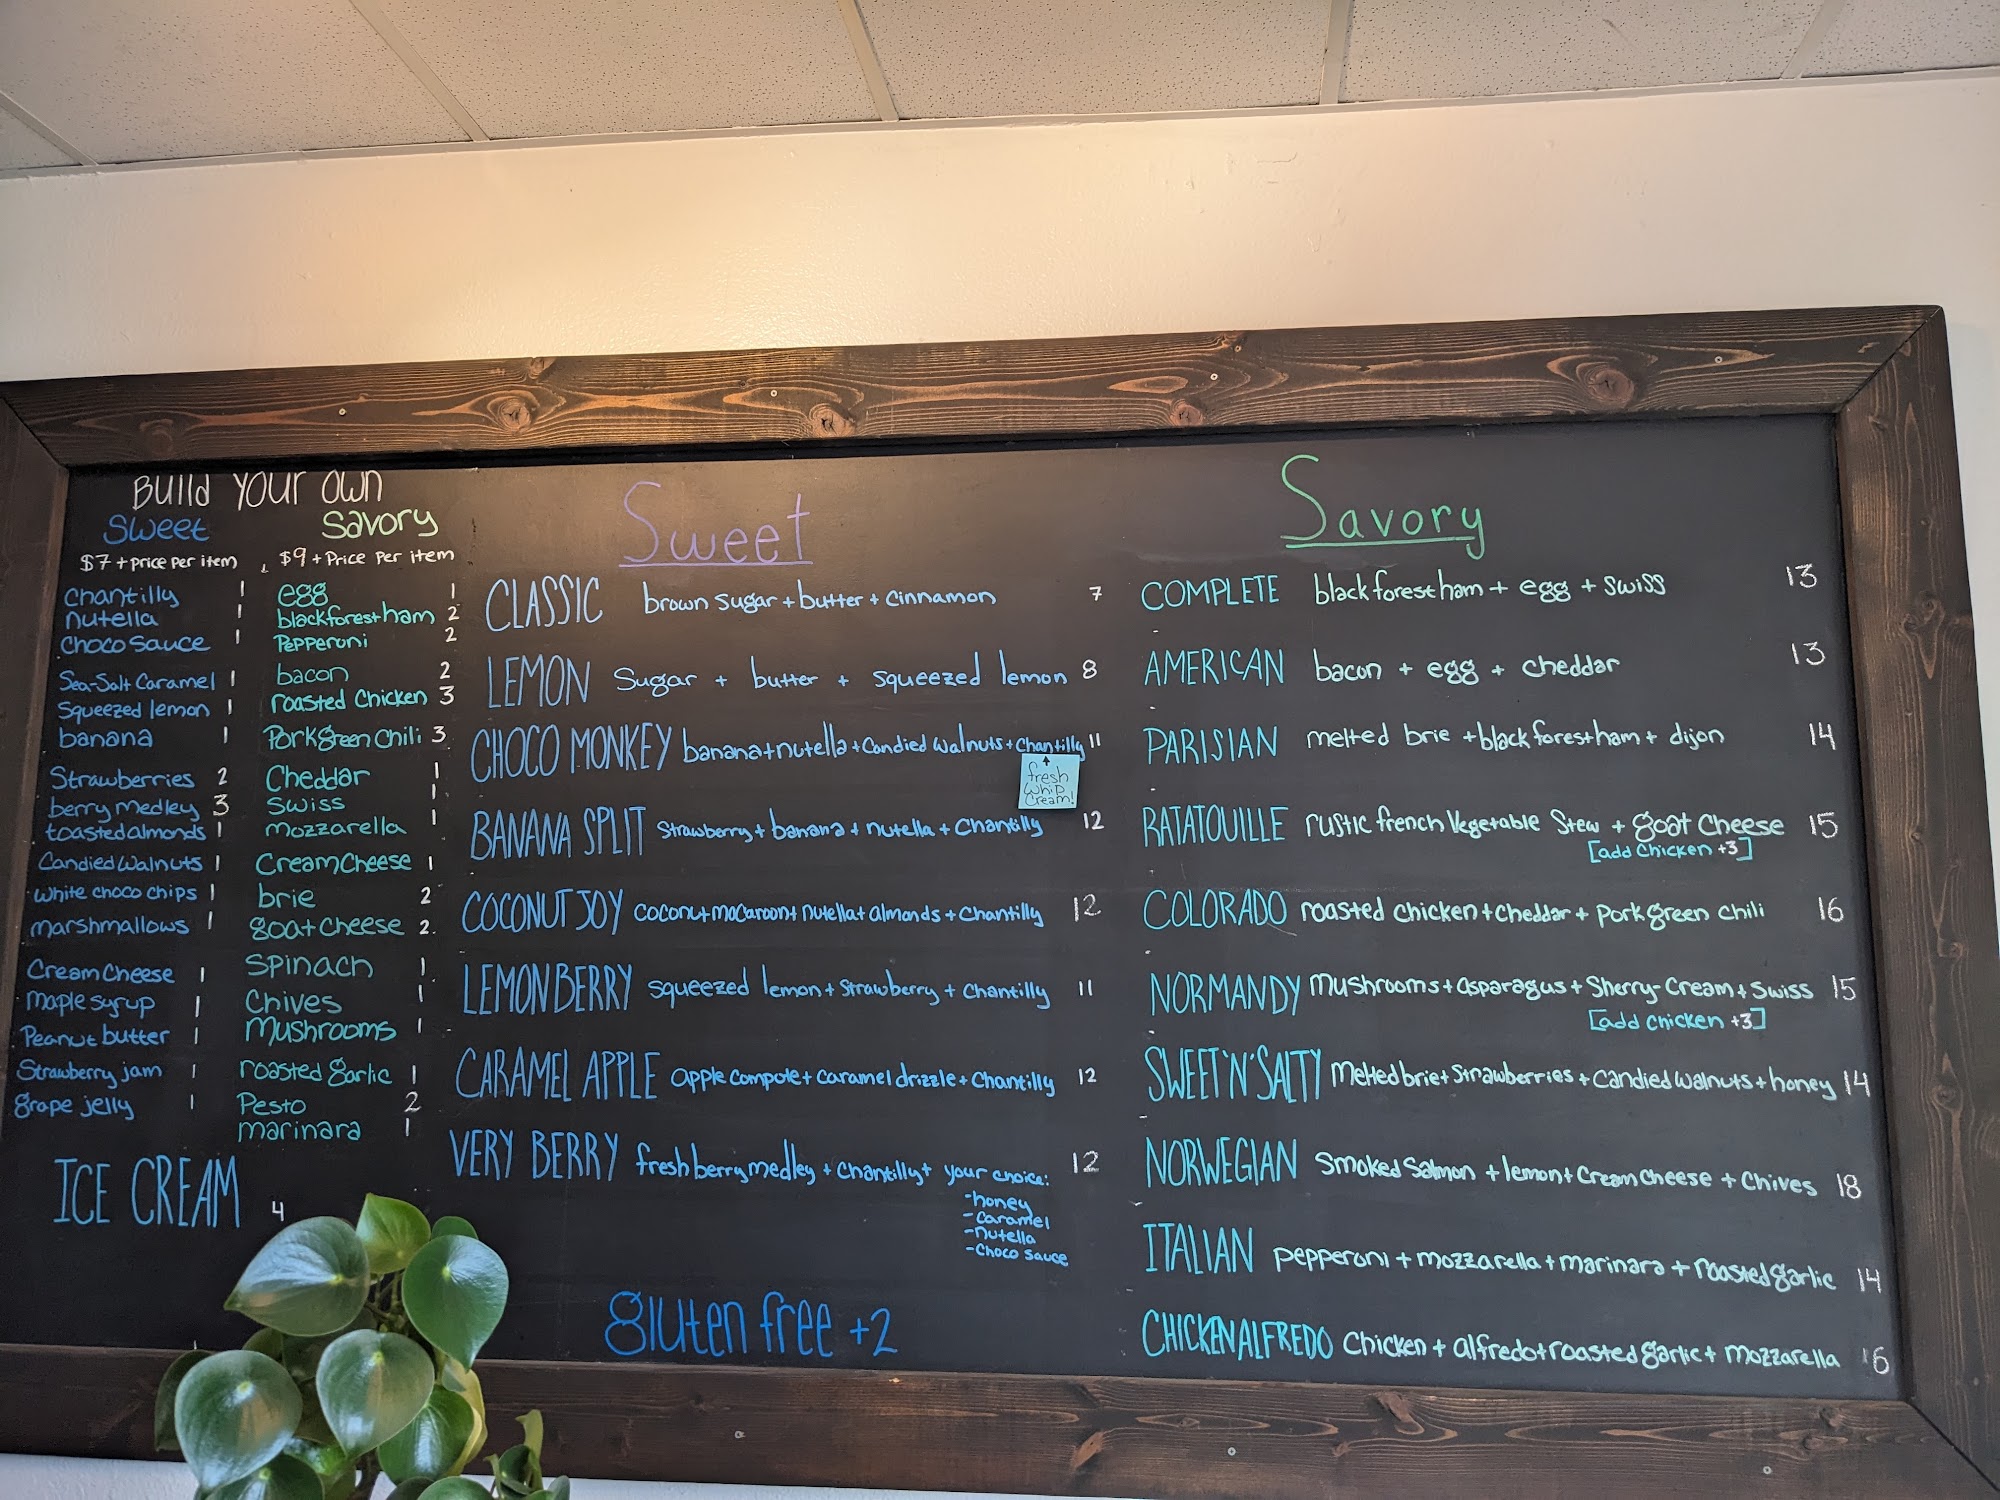 Build Your Own
Sweet
$7 + price per item
Chantilly 1
nutella 1
Choco Sauce 1
Sea-Salt Caramel 1
Squeezed lemon 1
banana 1
Strawberries 2
berry medley 3
toasted almonds 1
Candied Walnuts 1
White choco chips 1
marshmallows 1
Cream Cheese 1
maple syrup 1
Peanut butter 1
Strawberry jam 1
grape jelly 1
ICE CREAM 4
Savory
$9 + Price Per item
egg 1
blackforest ham 2
Pepperoni 2
bacon 2
roasted Chicken 3
Pork green Chili 3
Cheddar 1
Swiss 1
mozzarella 1
Cream Cheese 1
brie 2
goat cheese 2
Spinach 1
Chives 1
Mushrooms 1
roasted garlic 1
Pesto 2
marinara 1
Sweet
CLASSIC brown sugar + butter + Cinnamon 7
LEMON Sugar + butter + squeezed lemon 8
CHOCO MONKEY banana + nutella + Candied Walnuts + Chantilly 11
fresh
Whip
Cream!
BANANA SPLIT Strawberry + banana + nutella + Chantilly 12
COCONUT JOY coconut macaroon + nutella + almonds + Chantilly 12
LEMONBERRY squeezed lemon + Strawberry + Chantilly 11
CARAMEL APPLE apple compote + caramel drizzle + Chantilly 12
VERY BERRY fresh berry medley + Chantilly + your choice: 12
-honey
-Caramel
-nutella
-Choco sauce
gluten free +2
Savory
COMPLETE black forest ham + egg + Swiss 13
AMERICAN bacon + egg + cheddar 13
PARISIAN melted brie + black forest ham + dijon 14
RATATOUILLE rustic french Vegetable Stew + goat Cheese 15
[add Chicken +3]
COLORADO roasted chicken + Cheddar + pork green chili 16
NORMANDY Mushrooms + asparagus + Sherry-Cream + Swiss 15
[add chicken +3]
SWEET'N'SALTY Melted brie + Strawberries + Candied Walnuts + honey 14
NORWEGIAN Smoked Salmon + lemon + Cream Cheese + Chives 18
ITALIAN pepperoni + mozzarella + marinara + roasted garlic 14
CHICKEN ALFREDO Chicken + alfredo + roasted garlic + mozzarella 16